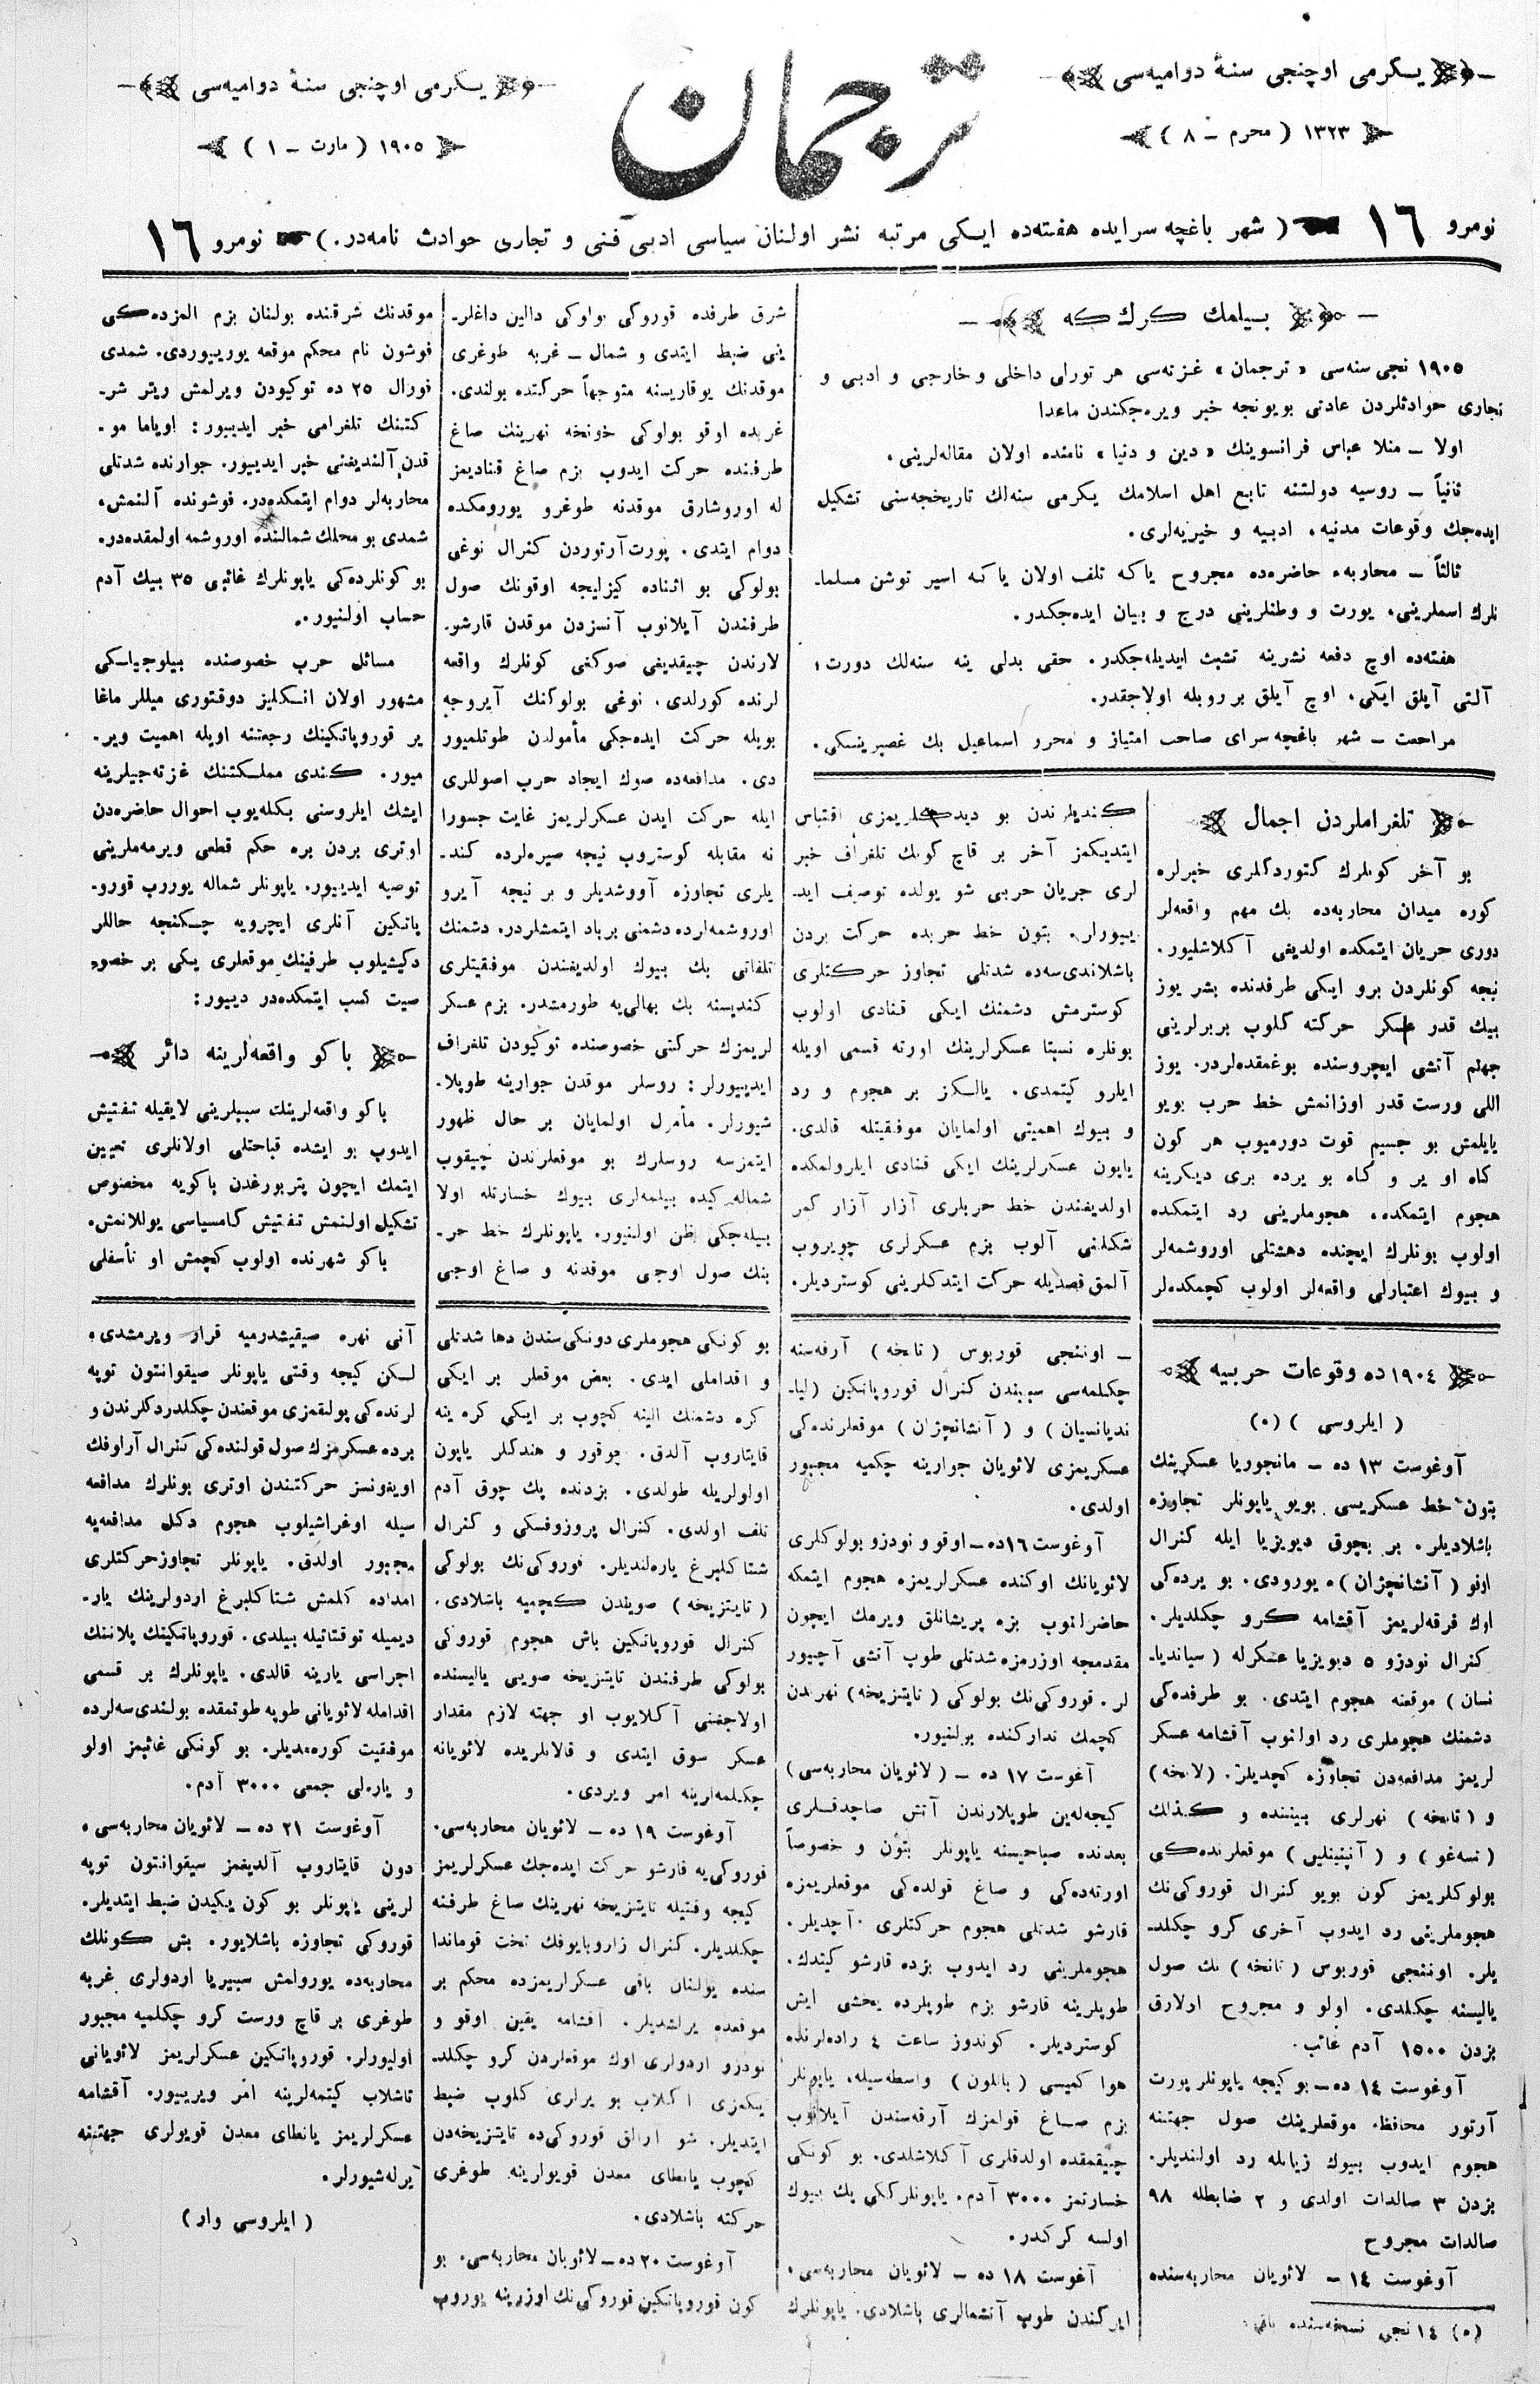 يكرمى اوچنجى سنهٔ دواميه‌سى
١٣٢٣ ( محرم ـ ٨ )
ترجمان
يكرمى اوچنجى سنهٔ دواميه‌سى
١٩٠٥ ( مارت ـ ١ )
نومرو ١٦ ( شهر باغچه سرايده هفته‌ده ايكى مرتبه نشر اولنان سياسى ادبى فنى و تجارى حوادث نامه‌در. ) نومرو ١٦
بيلمك كرك كه
١٩٠٥ نجى سنه‌سى « ترجمان » غزته‌سى هر تورلى داخلى و خارجى و ادبى و
تجارى حوادثلردن عادتى بويونجه خبر ويره‌جكندن ماعدا
اولا ـ منلا عباس فرانسوينك « دين و دنيا » نامنده اولان مقاله‌لرينى.
ثانياً ـ روسيه دولتنه تابع اهل اسلامك يكرمى سنه‌لك تاريخجه‌سنى تشكيل
ايده‌جك وقوعات مدنيه، ادبيه و خيريه‌لرى.
ثالثاً ـ محاربهء حاضره‌ده مجروح ياكه تلف اولان ياكه اسير توشن مسلما-
نلرك اسملرينى، يورت و وطنلرينى درج و بيان ايده‌جكدر.
هفته‌ده اوچ دفعه نشرينه تشبث ايديله‌جكدر. حقى بدلى ينه سنه‌لك دورت؛
آلتى آيلق ايكى، اوچ آيلق بر روبله اولاجقدر.
مراجعت ـ شهر باغچه سراى صاحب امتياز و محرر اسماعيل بك غصپرينسكى.
تلغراملردن اجمال
بو آخر كونلرك كتوردكلرى خبرلره
كوره ميدان محاربه‌ده بك مهم واقعه‌لر
دورى جريان ايتمكده اولديغى آكلاشليور.
نيجه كونلردن برو ايكى طرفدنده بشر يوز
بيك قدر عسكر حركته كلوب بربرلرينى
جهنم آتشى ايچروسنده بوغمقده‌لردر. يوز
اللى ورست قدر اوزانمش خط حرب بويو
يايلمش بو جسيم قوت دورميوب هر كون
كاه او ير و كاه بو يرده برى ديكرينه
هجوم ايتمكده، هجوملرينى رد ايتمكده
اولوب بونلرك ايچنده دهشتلى اوروشمه‌لر
و بيوك اعتبارلى واقعه‌لر اولوب كچمكده‌لر
كنديلرندن بو ديدكلريمزى اقتباس
ايتديكمز آخر بر قاچ كونك تلغراف خبر
لرى جريان حربى شو يولده توصيف ايد-
ييورلر. بتون خط حربده حركت بردن
باشلاندى‌سه‌ده شدتلى تجاوز حركتلرى
كوسترمش دشمنك ايكى قنادى اولوب
بونلره نسبتا عسكرلرينك اورته قسمى اويله
ايلرو كيتمدى. يالكز بر هجوم و رد
و بيوك اهميتى اولمايان موفقيتله قالدى.
ياپون عسكرلرينك ايكى قنادى ايلرولمكده
اولديغندن خط حربلرى آزار آزار كمر
شكلنى آلوب بزم عسكرلرى چويروب
آلمق قصديله حركت ايتدكلرينى كوسترديلر.
شرق طرفده قوروكى بولوكى دالين داغلر-
ينى ضبط ايتدى و شمال ـ غربه طوغرى
موقدنك يوقاريسنه متوجهاً حركتده بولندى.
غربده اوقو بولوكى خونخه نهرينك صاغ
طرفنده حركت ايدوب بزم صاغ قناديمز
له اوروشارق موقدنه طوغرو يورومكده
دوام ايتدى. پورت‌آرتوردن كنرال نوغى
بولوكى بو اثناده كيزليجه اوقونك صول
طرفندن آيلانوب آنسزدن موقدن قارشو-
لارندن چيقديغى صوكغى كونلرك واقعه
لرنده كورلدى. نوغى بولوكنك آيروجه
بويله حركت ايده‌جكى مأمولدن طوتلميور
دى. مدافعه‌ده صوك ايجاد حرب اصوللرى
ايله حركت ايدن عسكرلريمز غايت جسورا
نه مقابله كوستروب نيجه صيره‌لرده كند-
يلرى تجاوزه آووشديلر و بر نيجه آيرو
اوروشمه‌لرده دشمنى برباد ايتمشلردر. دشمنك
تلفاتى بك بيوك اولديغندن موفقيتلرى
كنديسنه بك بهالى‌يه طورمشدر. بزم عسكر
لريمزك حركتى خصوصنده توكيودن تلغراف
ايدييورلر: روسلر موقدن جوارينه طوپلا-
شيورلر. مأمول اولمايان بر حال ظهور
ايتمزسه روسلرك بو موقعلرندن چيقوب
شماله كيده بيلمه‌لرى بيوك خسارتله اولا
بيله‌جكى ظن اولنيور. ياپونلرك خط حر-
بنك صول اوجى موقدنه و صاغ اوجى
موقدنك شرقنده بولنان بزم المزده‌كى
فوشون نام محكم موقعه يورييوردى. شمدى
فورال ٢٥ ده توكيودن ويرلمش ريتر شر-
كتنك تلغرامى خبر ايدييور: اوياما مو-
قدن آلنديغنى خبر ايدييور. جوارنده شدتلى
محاربه‌لر دوام ايتمكده‌در. فوشونده آلنمش.
شمدى بو محلك شمالنده اوروشمه اولمقده‌در.
بو كونلرده‌كى ياپونلرك غائبى ٣٥ بيك آدم
حساب اولنيور.
مسائل حرب خصوصنده بيلوجيلكى
مشهور اولان انكليز دوقتورى ميللر ماغا
ير قوروپاتكينك رجعتنه اويله اهميت وير-
ميور. كندى مملكتنك غزته‌جيلرينه
ايشك ايلروسنى بكله‌يوب احوال حاضره‌دن
اوترى بردن بره حكم قطعى ويرمه‌ملرينى
توصيه ايدييور. ياپونلر شماله يوروب قورو-
پاتكين آنلرى ايچرويه چكنجه حاللر
دكيشيلوب طرفينك موقعلرى يكى بر خصو-
صيت كسب ايتمكده‌در دييور:
باكو واقعه‌لرينه دائر
باكو واقعه‌لرينك سببلرينى لايقيله تفتيش
ايدوب بو ايشده قباحتلى اولانلرى تعيين
ايتمك ايچون پتربورغدن باكويه مخصوص
تشكيل اولنمش تفتيش كامسياسى يوللانمش.
باكو شهرنده اولوب كچمش او تأسفلى
١٩٠٤ ده وقوعات حربيه
( ايلروسى ) (٥)
آوغوست ١٣ ده ـ مانجوريا عسكرينك
بتون خط عسكريسى بويو ياپونلر تجاوزه
باشلاديلر. بر بچوق ديويزيا ايله كنرال
اوقو ( آنشانچژان ) ه يورودى. بو يرده‌كى
اوك فرقه‌لريمز آقشامه كرو چكلديلر.
كنرال نودزو ٥ ديويزيا عسكرله ( سيانديا-
نسان ) موقعنه هجوم ايتدى. بو طرفده‌كى
دشمنك هجوملرى رد اولنوب آقشامه عسكر
لريمز مدافعه‌دن تجاوزه كچديلر. ( لانخه )
و ( تانخه ) نهرلرى بيننده و كذلك
( تسه‌غو ) و ( آنپنيلين ) موقعلرنده‌كى
بولوكلريمز كون بويو كنرال قوروكى‌نك
هجوملرينى رد ايدوب آخرى كرو چكلد-
يلر. اوننجى قوربوس ( تانخه ) نك صول
ياليسنه چكلدى. اولو و مجروح اولارق
بزدن ١٥٠٠ آدم غائب.
آوغوست ١٤ ده ـ بو كيجه ياپونلر پورت
آرتور محافظه موقعلرينك صول جهتنه
هجوم ايدوب بيوك زيانله رد اولنديلر.
بزدن ٣ صالدات اولدى و ٢ ضابطله ٩٨
صالدات مجروح
آوغوست ١٤ ـ لائويان محاربه‌سنده
(٥) ١٤ نجى نسخه‌سنده باقى.
ـ اوننجى قوربوس ( تانخه ) آرقه‌سنه
چكلمه‌سى سببندن كنرال قوروپاتكين ( ليا-
نديانسيان ) و ( آنشانچژان ) موقعلرنده‌كى
عسكريمزى لائويان جوارينه چكميه مجبور
اولدى.
آوغوست ١٦ ده ـ اوقو و نودزو بولوكلرى
لائويانك اوكنده عسكرلريمزه هجوم ايتمكه
حاضرلنوب بزه پريشانلق ويرمك ايچون
مقدمجه اوزرمزه شدتلى طوپ آتشى آچييور
لر. قوروكى‌نك بولوكى ( تايتزيخه ) نهرندن
كچمك تداركنده بولنيور.
آغوست ١٧ ده ـ ( لائويان محاربه‌سى )
كيجه‌له‌ين طوپلارندن آتش صاچدقلرى
بعدنده صباحيسنه ياپونلر بتون و خصوصاً
اورته‌ده‌كى و صاغ قولده‌كى موقعلريمزه
قارشو شدتلى هجوم حركتلرى آچديلر.
هجوملرينى رد ايدوب بزده قارشو كيتدك.
طوپلرينه قارشو بزم طوپلرده يخشى ايش
كوسترديلر. كوندوز ساعت ٤ راده‌لرنده
هوا كميسى ( باللون ) واسطه‌سيله، ياپونلر
بزم صاغ قولمزك آرقه‌سندن آيلانوب
چيقمقده اولدقلرى آكلاشلدى. بو كونكى
خسارتمز ٣٠٠٠ آدم. ياپونلرككى پك بيوك
اولسه كركدر.
آغوست ١٨ ده ـ لائويان محاربه‌سى.
ايركندن طوپ آتشلرى باشلادى. ياپونلرك
بو كونكى هجوملرى دونكى‌سندن دها شدتلى
و اقداملى ايدى. بعض موقعلر بر ايكى
كره دشمنك الينه كچوب بر ايكى كره ينه
قايتاروب آلدق. چوقور و هندكلر ياپون
اولولريله طولدى. بزدنده پك چوق آدم
تلف اولدى. كنرال پروزوفسكى و كنرال
شتاكلبرغ ياره‌لنديلر. قوروكى‌نك بولوكى
( تايتزيخه ) صويندن كچميه باشلادى.
كنرال قوروپاتكين باش هجوم قوروكى
بولوكى طرفندن تايتزيخه صويى ياليسنده
اولاجغنى آكلايوب او جهته لازم مقدار
عسكر سوق ايتدى و قالانلريده لائويانه
چكلمه‌لرينه امر ويردى.
آوغوست ١٩ ده ـ لائويان محاربه‌سى.
قوروكى‌يه قارشو حركت ايده‌جك عسكرلريمز
كيجه وقتيله تايتزيخه نهرينك صاغ طرفنه
چكلديلر. كنرال زاروبايوفك تحت قوماندا
سنده بولنان باقى عسكرلريمزده محكم بر
موقعده يرلشديلر. آقشامه يقين اوقو و
نودزو اردولرى اوك موقعلردن كرو چكلد-
يكمزى آكلاب بو يرلرى كلوب ضبط
ايتديلر. شو ارالق قوروكى‌ده تايتزيخه‌دن
كچوب يانطاى معدن قويولرينه طوغرى
حركته باشلادى.
آوغوست ٢٠ ده ـ لائويان محاربه‌سى. بو
كون قوروپاتكين قوروكى‌نك اوزرينه يوروب
آنى نهره صيقيشدرميه قرار ويرمشدى.
لكن كيجه وقتى ياپونلر صيقوانتون توپه
لرنده‌كى پولقمزى موقعندن چكلدردكلرندن و
برده عسكرمزك صول قولنده‌كى كنرال آراوفك
اويغونسز حركتندن اوترى بونلرك مدافعه
سيله اوغراشيلوب هجوم دكل مدافعه‌يه
مجبور اولدق. ياپونلر تجاوز حركتلرى
امداده كلمش شتاكلبرغ اردولرينك يار-
ديميله توقتاتيله بيلدى. قوروپاتكينك پلاننك
اجراسى يارينه قالدى. ياپونلرك بر قسمى
اقدامله لائويانى طوپه طوتمقده بولندى‌سه‌لرده
موفقيت كوره‌مديلر. بو كونكى غائبمز اولو
و ياره‌لى جمعى ٣٠٠٠ آدم.
آوغوست ٢١ ده ـ لائويان محاربه‌سى.
دون قايتاروب آلديغمز سيقوانتون توپه
لرينى ياپونلر بو كون يكيدن ضبط ايتديلر.
قوروكى تجاوزه باشلايور. بش كونلك
محاربه‌ده يورولمش سيبيريا اردولرى غربه
طوغرى بر قاچ ورست كرو چكلميه مجبور
اوليورلر. قوروپاتكين عسكرلريمز لائويانى
تاشلاب كيتمه‌لرينه امر ويرييور. آقشامه
عسكرلريمز يانطاى معدن قويولرى جهتنه
يرله‌شيورلر.
( ايلروسى وار )